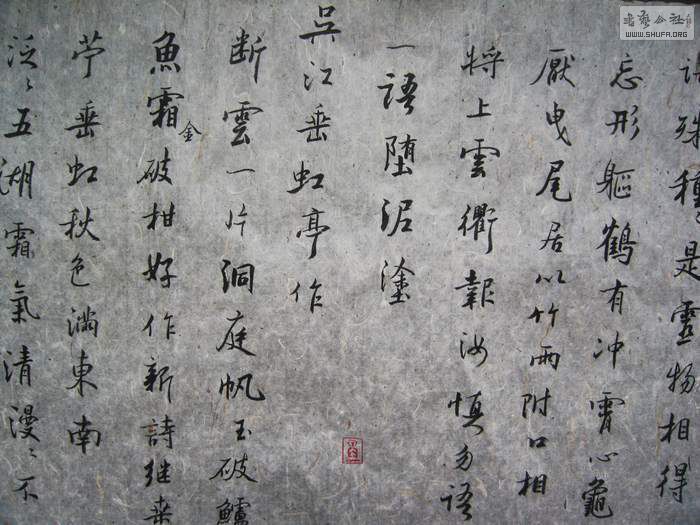 殊種〻是靈物相得
忘形軀鶴有冲霄心龜
厭曳尾居以竹兩附口相
將上雲衢報汝慎勿語
一語堕泥塗
吳江垂虹亭作
断雲一片洞庭帆玉破鱸
魚霜金破柑好作新詩継桑
苧垂虹秋色滿東南
泛〻五湖霜氣清漫〻不
书艺公社
WWW.SHUFA.ORG